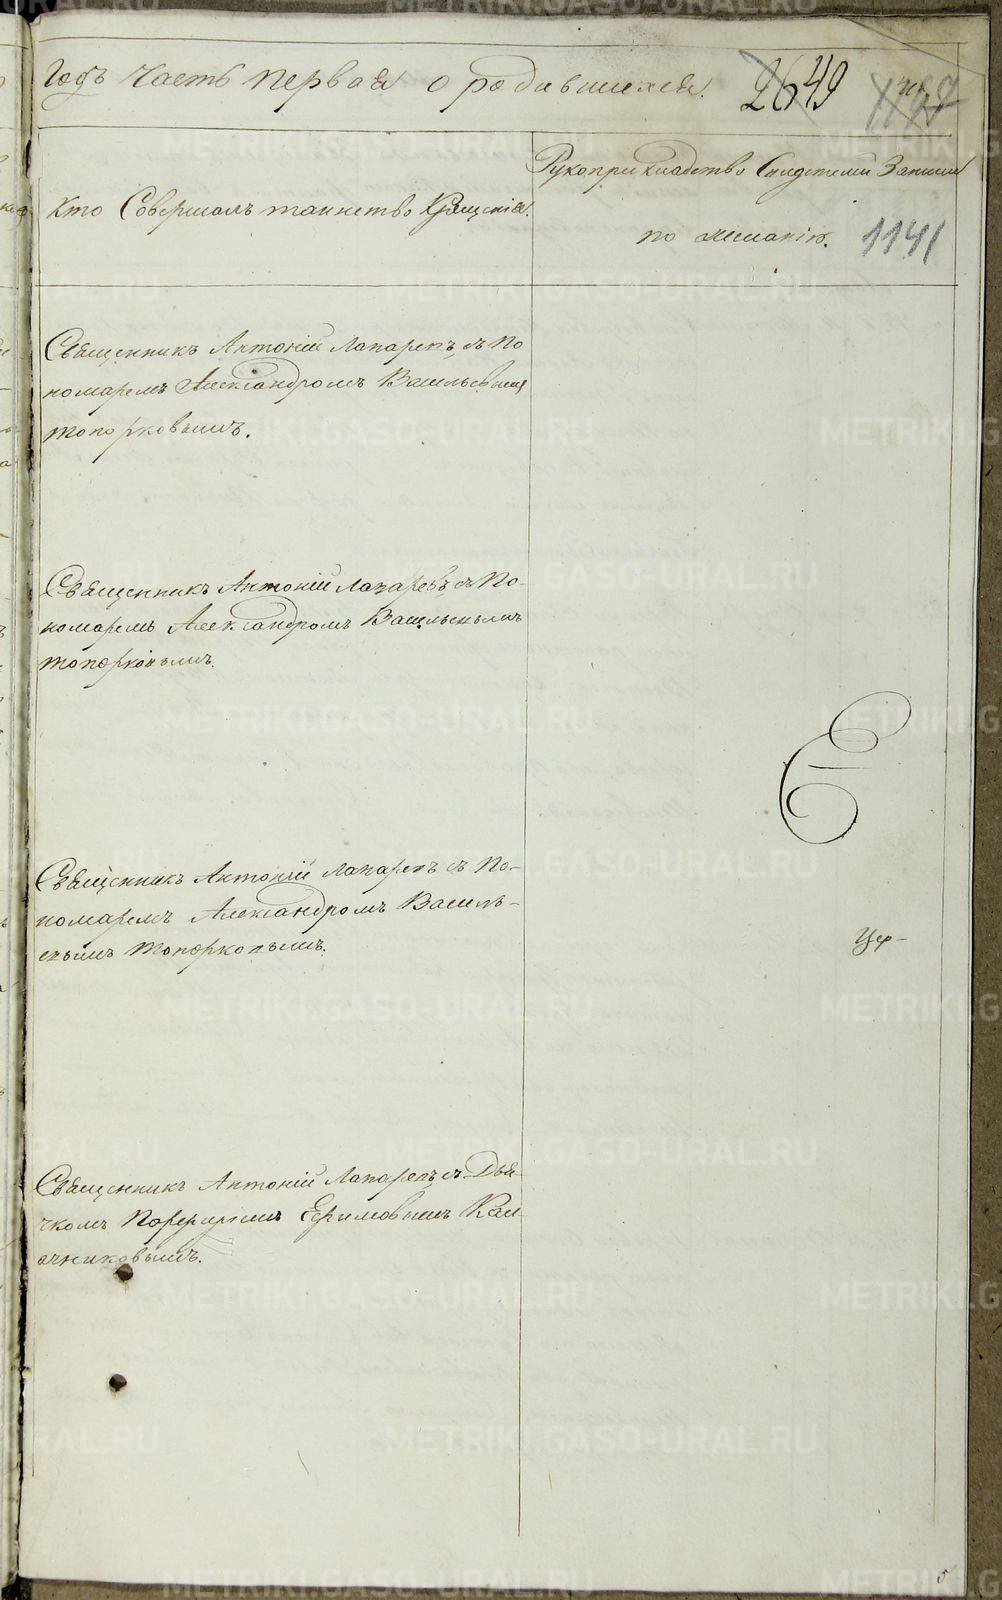 Годъ Часть первая о родившихся. 2649
Кто Совершалъ таинство Крещенія.
Рукоприкладство Свидетелей Записи
по желанію. 1141
Священникъ Антоній Лапаревъ съ По
номаремъ Александромъ Васильевым
топорковымъ.
Священникъ Антоній Лазаревъ съ По-
номаремъ Александромъ Васильевымъ
топорковымъ.
Священникъ Антоній Лапаревъ съ По-
номаремъ Александромъ Василь-
евымъ Топорковымъ.
Священникъ Антоній Лапаревъ съ Дья-
чкомъ Порфиріемъ Ефимовымъ Кал
ачниковымъ.
Цер-
5
METRIKI.GASO-URAL.RU